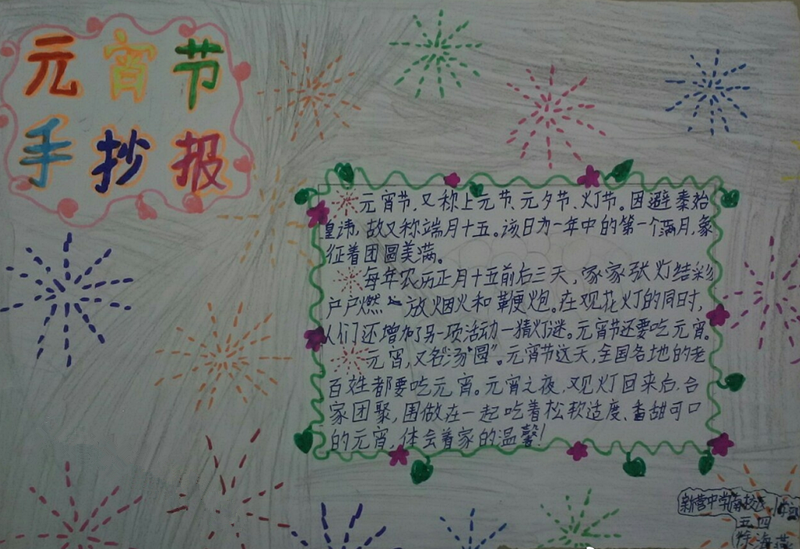 元宵节
手抄报
元宵节,又称上元节、元夕节、灯节。因避秦始
皇讳,故又称端月十五。该日为一年中的第一个满月,象
征着团圆美满。
每年农历正月十五前后三天,家家张灯结彩
户户燃放烟火和鞭炮。在观花灯的同时,
人们还增加了另一项活动一猜灯谜。元宵节还要吃元宵。
元宵,又名"汤圆"。元宵节这天,全国各地的老
百姓都要吃元宵。元宵之夜,观灯回来后,合
家团聚,围做在一起吃着松软适度、香甜可口
的元宵,体会着家的温馨!
新营中学南校
五四
海燕